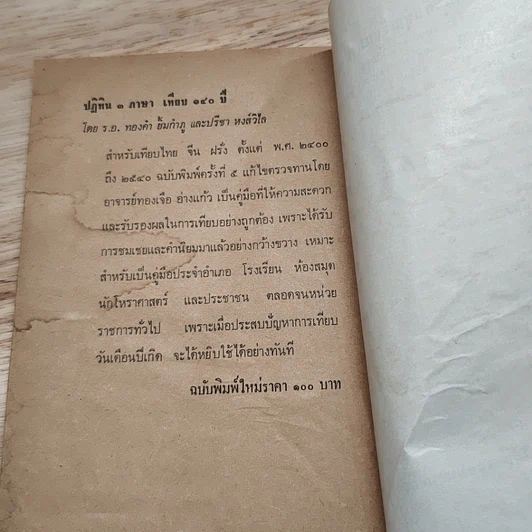 ปฏิทิน ๓ ภาษา เทียบ ๑๔๐ ปี
โดย ร.อ. ทองคำ ยิ้มกำภู และปรีชา หงส์วิไล
สำหรับเทียบไทย จีน ฝรั่ง ตั้งแต่ พ.ศ. ๒๔๐๐
ถึง ๒๕๔๐ ฉบับพิมพ์ครั้งที่ ๕ แก้ไขตรวจทานโดย
อาจารย์ทองเจือ อ่างแก้ว เป็นคู่มือที่ให้ความสะดวก
และรับรองผลในการเทียบอย่างถูกต้อง เพราะได้รับ
การชมเชยและคำนิยมมาแล้วอย่างกว้างขวาง เหมาะ
สำหรับเป็นคู่มือประจำอำเภอ โรงเรียน ห้องสมุด
นักโหราศาสตร์ และประชาชน ตลอดจนหน่วย
ราชการทั่วไป เพราะเมื่อประสบปัญหาการเทียบ
วันเดือนปีเกิด จะได้หยิบใช้ได้อย่างทันที
ฉบับพิมพ์ใหม่ราคา ๑๐๐ บาท